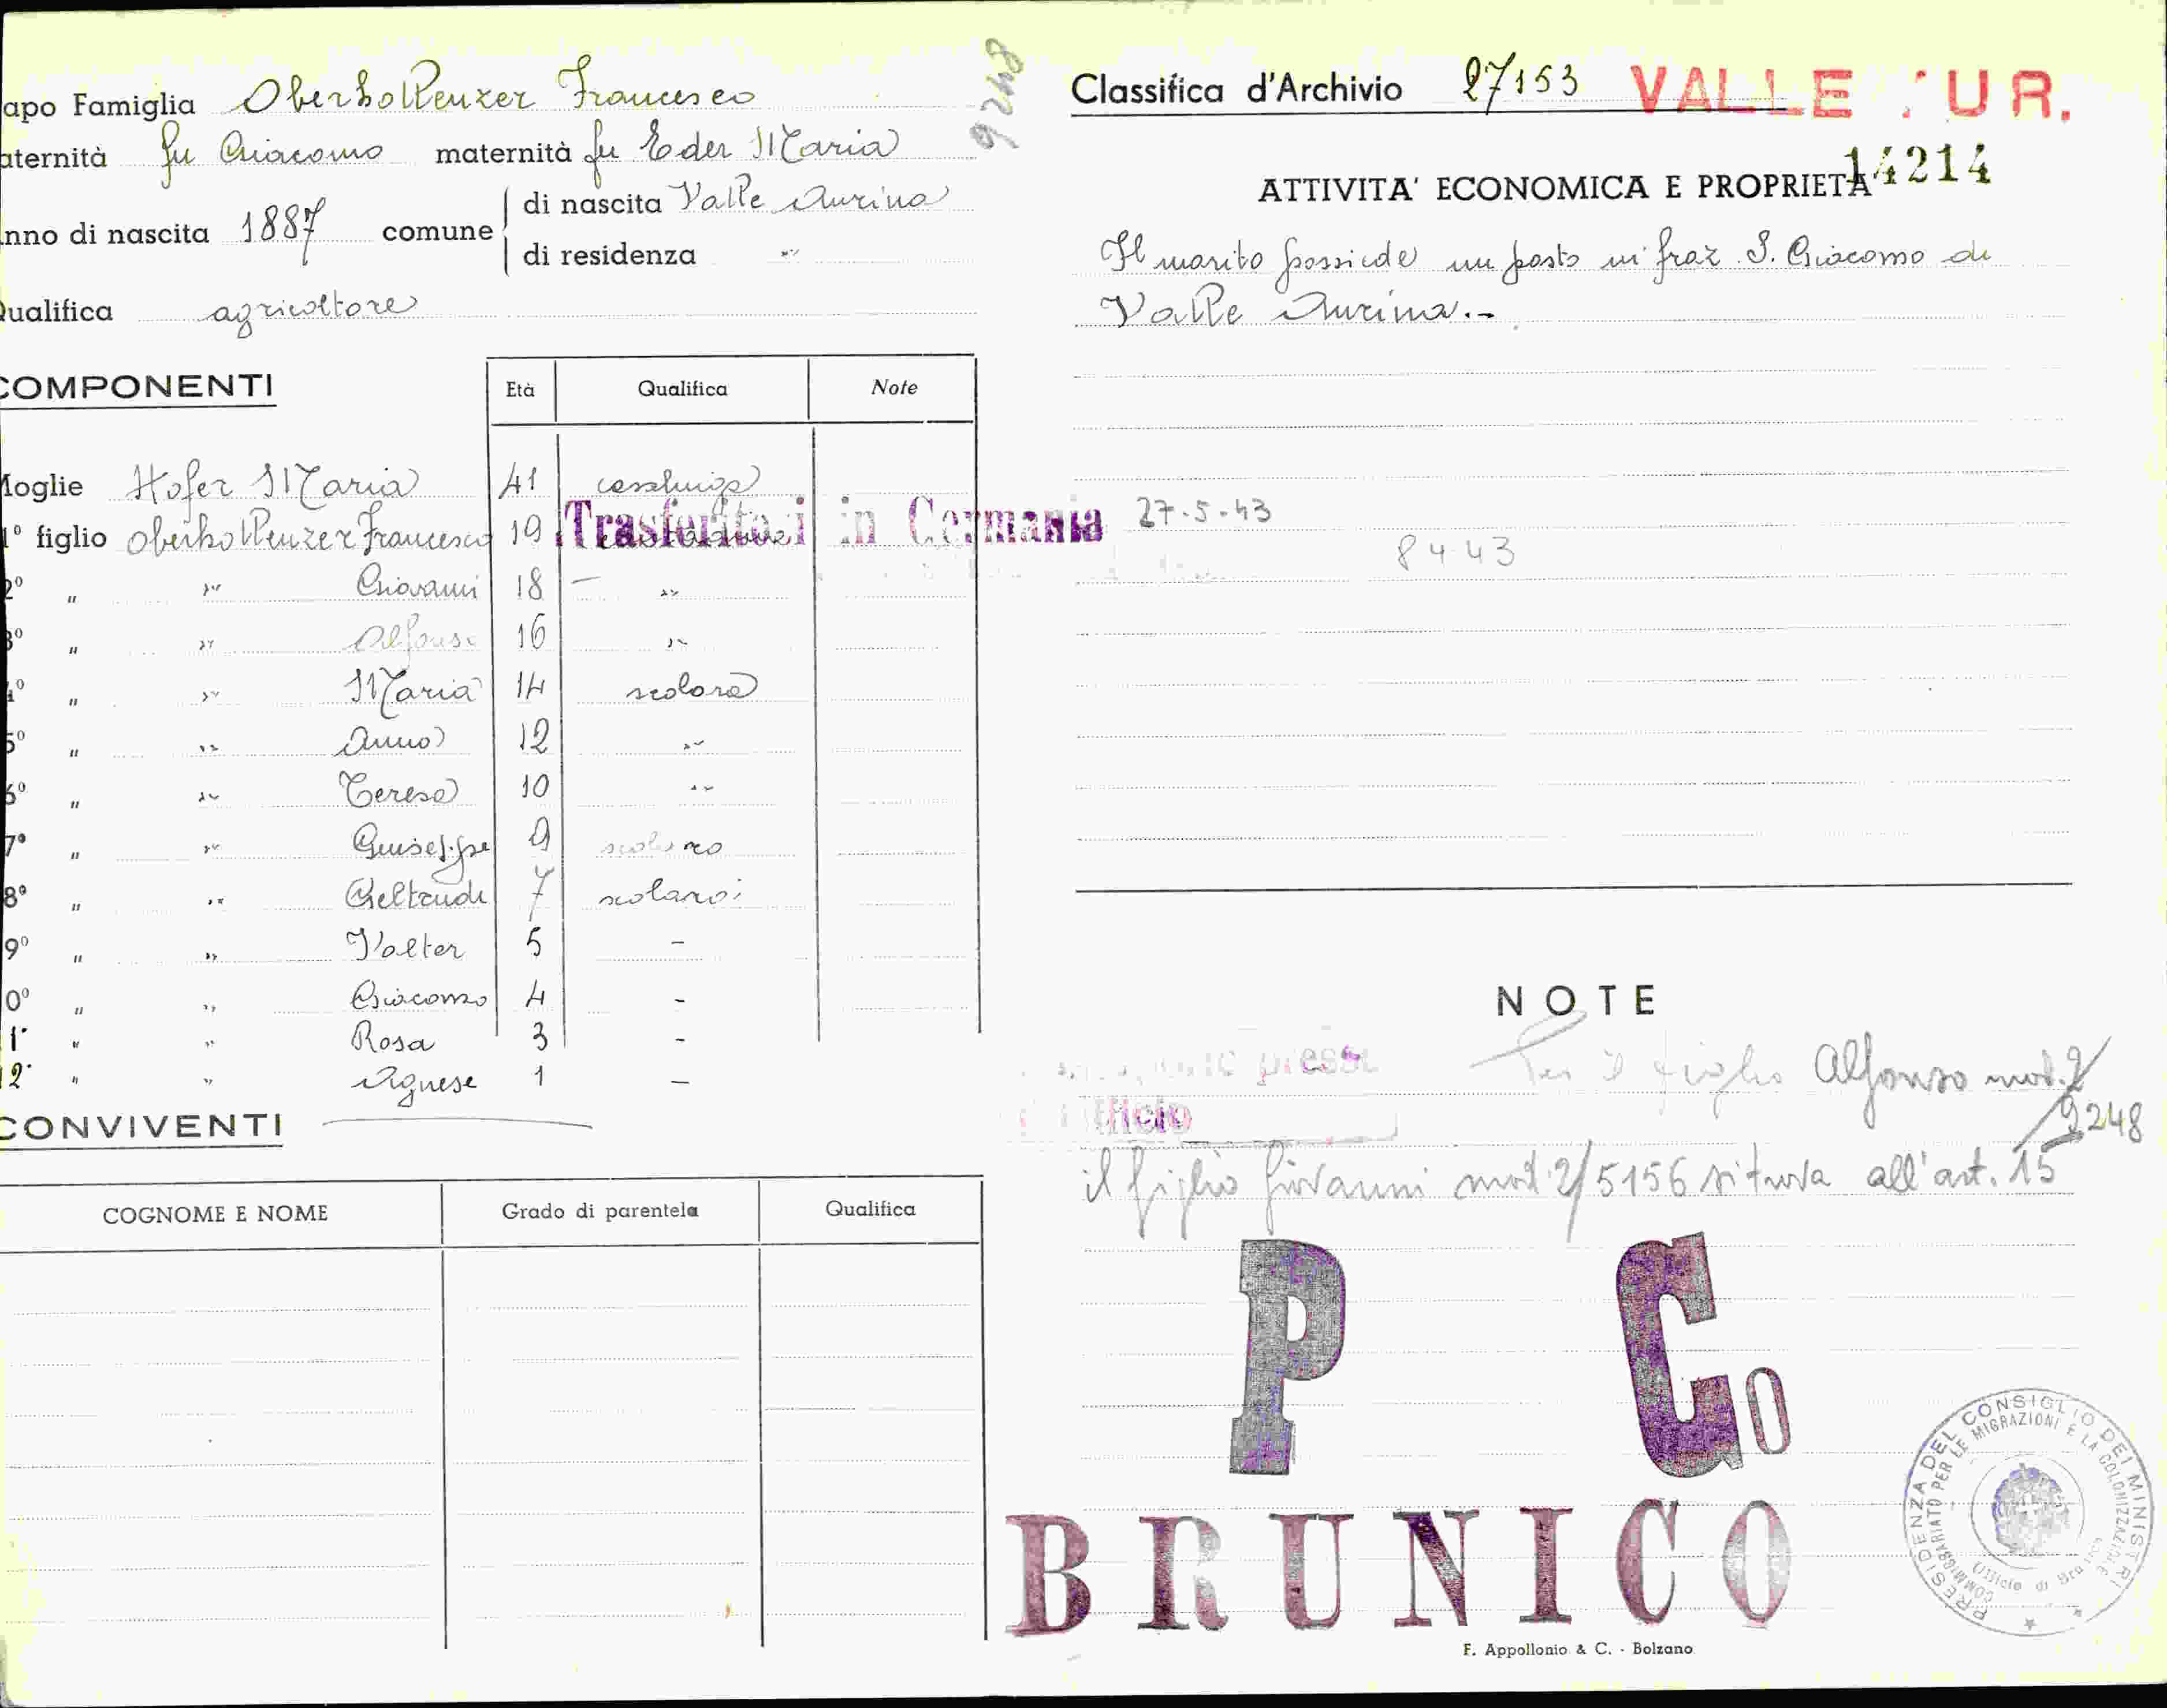 apo Famiglia Oberhollenzer Francesco
aternità fu Giacomo maternità fu Eder Maria
nno di nascita 1887 comune di nascita Valle Aurina
di residenza "
ualifica agricoltore
9248
COMPONENTI Età Qualifica Note
Moglie Hofer Maria 41 casalinga
1º figlio Oberhollenzer Francesco 19
Trasferitosi in Germania 27-5-43
8 4 43
2º " " Giovanni 18 — "
3º " " Alfonso 16 "
4º " " Maria 14 scolara
5º " " Anna 12 "
6º " " Teresa 10 "
7º " " Giuseppe 9 scolaro
8º " " Geltrude 7
9º " " Valter 5 -
0º " " Giacomo 4 -
1º " " Rosa 3 -
2º " " Agnese 1 —
CONVIVENTI
COGNOME E NOME Grado di parentela Qualifica
Classifica d'Archivio 27153 VALLE UR.
14214
ATTIVITA' ECONOMICA E PROPRIETA'
Il marito possiede un posto in fraz. S. Giacomo di
Valle Aurina.-
NOTE
Per il figlio Alfonso mod. 2/
9248
il figlio Giovanni mod 2/5156 si trova all'art. 15
P Co
BRUNICO
PRESIDENZA DEL CONSIGLIO DEI MINISTRI
COMMISSARIATO PER LE MIGRAZIONI E LA COLONIZZAZIONE
Ufficio di
F. Appollonio & C. - Bolzano